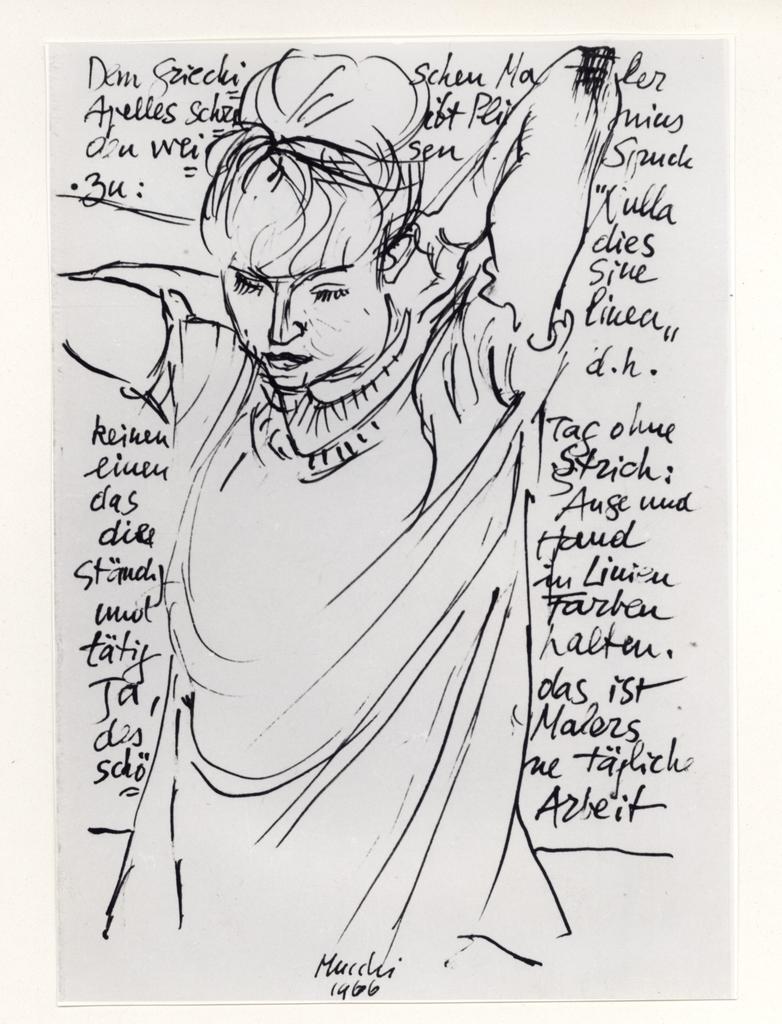 Dem Griechi= schen Ma= ler
Apelles schre ibt Pli= nius
den wei= sen Spruch
zu: "Nulla
dies
sine
linea„
d.h.
keinen Tag ohne
einen Strich:
das Auge und
die Hand
ständig in Linien
und Farben
tätig halten.
Ja, das ist
des Malers
schö= ne tägliche
Arbeit
Mucchi
1966